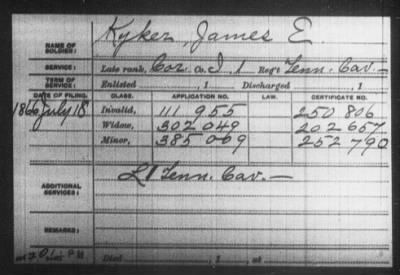 NAME OF SOLDIER: Kyker, James E
SERVICE: Late rank, Cor. Co. I, 1 Reg't Tenn. Cav.—
TERM OF SERVICE: Enlisted , 1 Discharged , 1
DATE OF FILING. CLASS. APPLICATION NO. LAW. CERTIFICATE NO.
1866 July 18 Invalid, 111 955 250 806
Widow, 302 049 202 657
Minor, 385 069 252 790
ADDITIONAL SERVICES: L 1 Tenn. Cav.—
REMARKS:
Died , 1 at